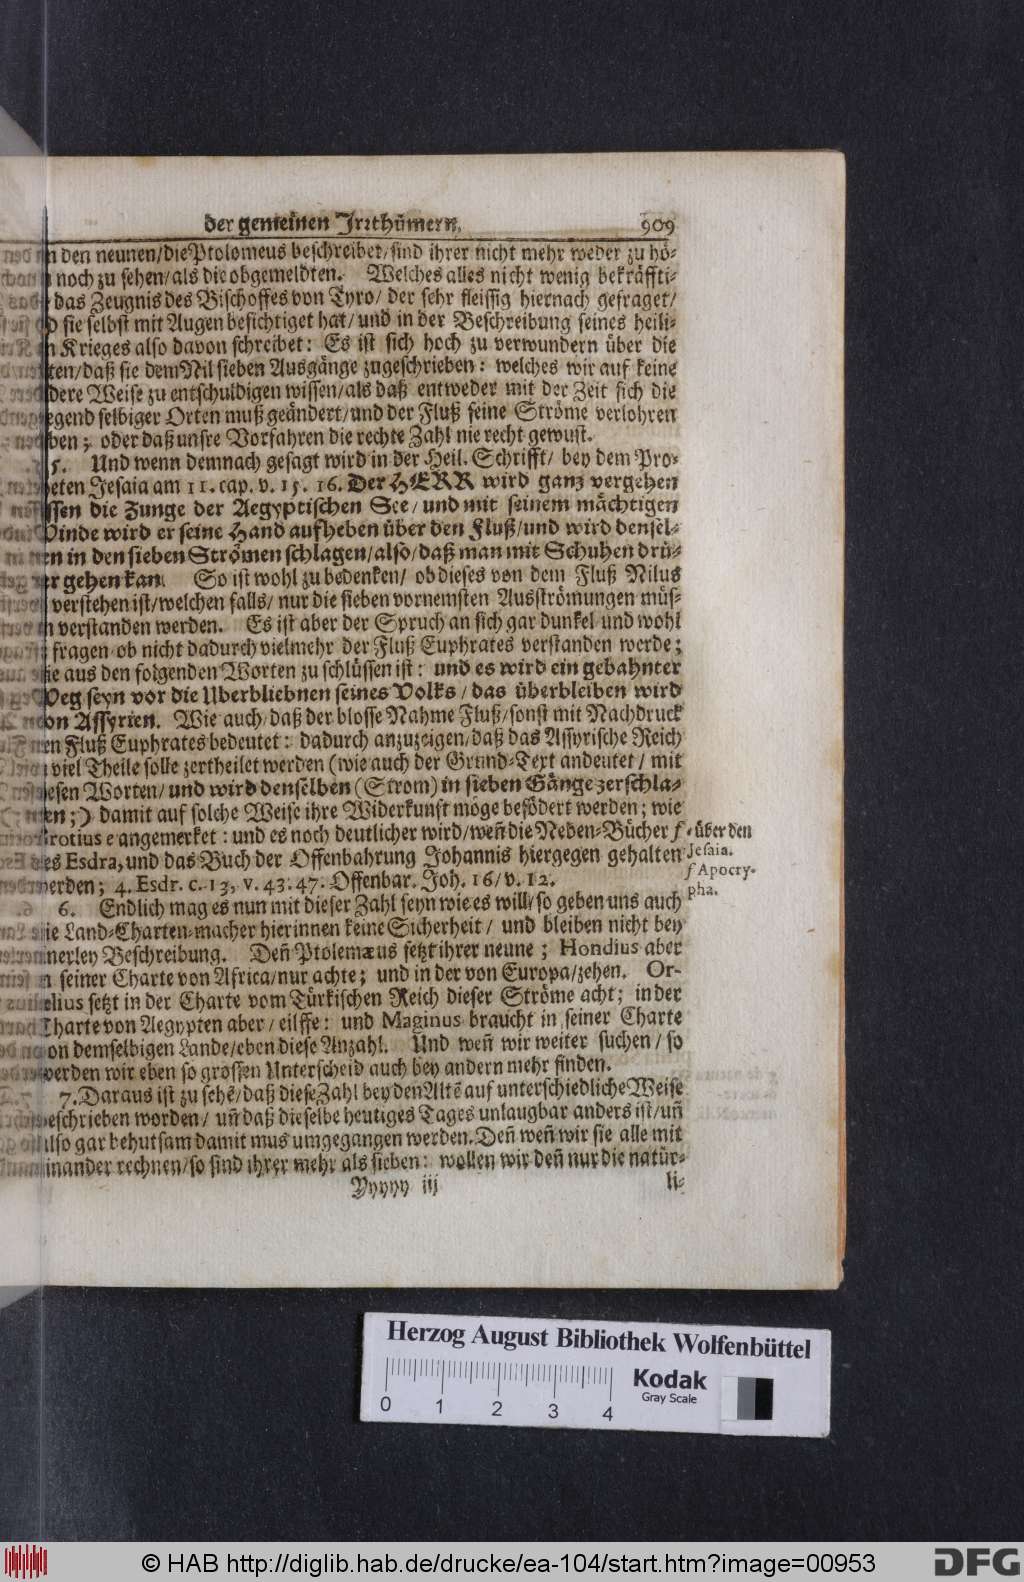 der gemeinen Irrthümern. 909
den neunen/die Ptolomeus beschreibet/sind ihrer nicht mehr weder zu hö-
noch zu sehen/als die obgemeldten. Welches alles nicht wenig bekräffti-
das Zeugnis des Bischoffes von Tyro/ der sehr fleissig hiernach gefraget/
sie selbst mit Augen besichtiget hat/und in der Beschreibung seines heili-
Krieges also davon schreibet: Es ist sich hoch zu verwundern über die
ten/daß sie dem Nil sieben Ausgänge zugeschrieben: welches wir auf keine
dere Weise zu entschuldigen wissen/als daß entweder mit der Zeit sich die
egend selbiger Orten muß geändert/und der Fluß seine Ströme verlohren
ben; oder daß unsre Vorfahren die rechte Zahl nie recht gewust.
5. Und wenn demnach gesagt wird in der Heil. Schrifft/ bey dem Pro-
eten Jesaia am 11. cap. v. 15. 16. Der HERR wird ganz vergehen
ssen die Zunge der Aegyptischen See/und mit seinem mächtigen
Winde wird er seine Hand aufheben über den Fluß/und wird densel-
en in den sieben Strömen schlagen/also/daß man mit Schuhen drü-
er gehen kan. So ist wohl zu bedenken/ ob dieses von dem Fluß Nilus
verstehen ist/welchen falls/ nur die sieben vornemsten Ausströmungen müs-
n verstanden werden. Es ist aber der Spruch an sich gar dunkel und wohl
fragen ob nicht dadurch vielmehr der Fluß Euphrates verstanden werde;
ie aus den folgenden Worten zu schlüssen ist: und es wird ein gebahnter
Weg seyn vor die Uberbliebnen seines Volks/das überbleiben wird
von Assyrien. Wie auch/daß der blosse Nahme Fluß/sonst mit Nachdruck
en Fluß Euphrates bedeutet: dadurch anzuzeigen/daß das Assyrische Reich
viel Theile solle zertheilet werden (wie auch der Grund-Text andeutet/ mit
iesen Worten/und wird denselben (Strom) in sieben Gänge zerschla-
en;) damit auf solche Weise ihre Widerkunft möge befödert werden; wie
Grotius e angemerket: und es noch deutlicher wird/weñ die Neben-Bücher f
es Esdra, und das Buch der Offenbahrung Johannis hiergegen gehalten
werden; 4. Esdr. c. 13, v. 43. 47. Offenbar. Joh. 16/v. 12.
e über den
Jesaia.
f Apocry-
pha.
6. Endlich mag es nun mit dieser Zahl seyn wie es will/so geben uns auch
ie Land-Charten-macher hierinnen keine Sicherheit/ und bleiben nicht bey
inerley Beschreibung. Deñ Ptolemæus setzt ihrer neune; Hondius aber
n seiner Charte von Africa/nur achte; und in der von Europa/zehen. Or-
elius setzt in der Charte vom Türkischen Reich dieser Ströme acht; in der
Charte von Aegypten aber/ eilffe: und Maginus braucht in seiner Charte
von demselbigen Lande/eben diese Anzahl. Und weñ wir weiter suchen/ so
werden wir eben so grossen Unterscheid auch bey andern mehr finden.
7. Daraus ist zu sehẽ/daß diese Zahl bey den Altẽ auf unterschiedliche Weise
beschrieben worden/ uñ daß dieselbe heutiges Tages unlaugbar anders ist/uñ
also gar behutsam damit mus umgegangen werden. Deñ weñ wir sie alle mit
einander rechnen/so sind ihrer mehr als sieben: wollen wir deñ nur die natür-
Yyyyy iij li-
Herzog August Bibliothek Wolfenbüttel
Kodak
Gray Scale
0 1 2 3 4
© HAB http://diglib.hab.de/drucke/ea-104/start.htm?image=00953
DFG